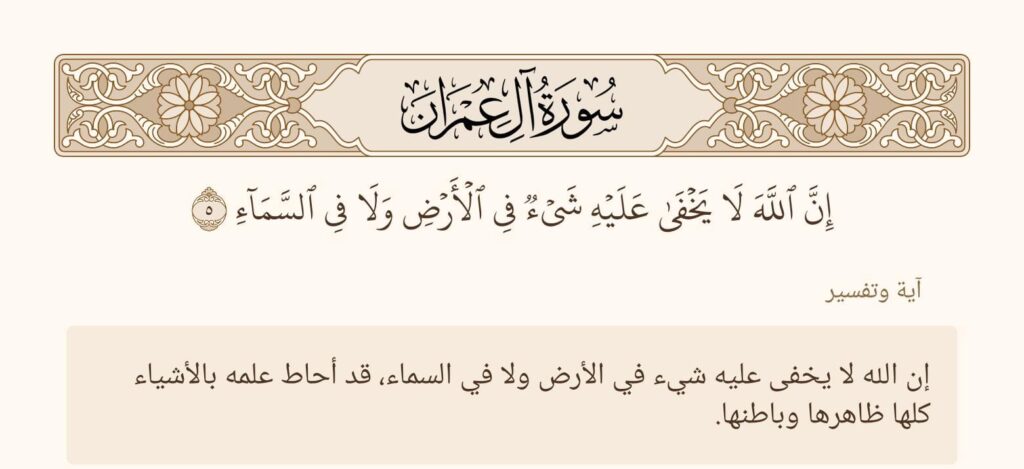 سُورَةُ آلِ عِمْرَانَ
إِنَّ ٱللَّهَ لَا يَخْفَىٰ عَلَيْهِ شَىْءٌۭ فِى ٱلْأَرْضِ وَلَا فِى ٱلسَّمَآءِ ٥
آية وتفسير
إن الله لا يخفى عليه شيء في الأرض ولا في السماء، قد أحاط علمه بالأشياء
كلها ظاهرها وباطنها.